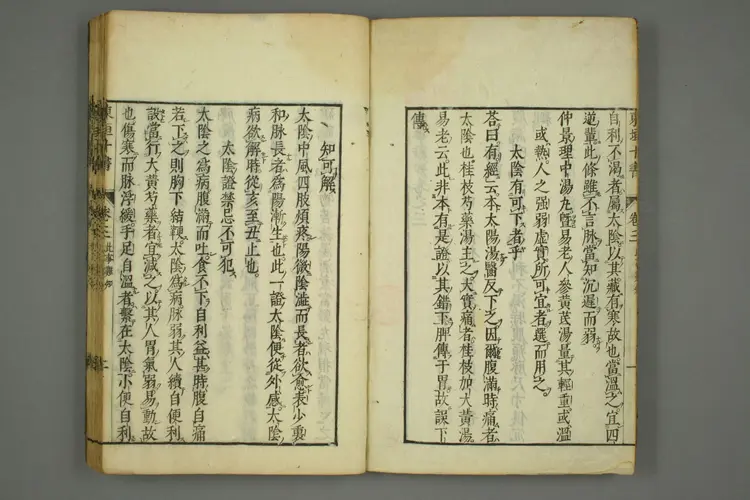 自利不渴者屬太陰以其藏有寒故也當溫之宜四
逆輩此條雖不言脉當知沉遲而弱
仲景理中湯丸暨易老人參黃芪湯量其輕重或溫
或熱人之強弱虛實所可宜者選而用之
太陰有可下者乎
荅曰有經云本太陽湯醫反下之因爾腹滿時痛者
太陰也桂枝芍藥湯主之大實痛者桂枝加大黃湯
易老云此非本有是證以其錯下脾傳于胃故誤下
傳
知可解
太陰中風四肢煩疼陽微陰濇而長者欲愈表少裏
和脉長者爲陽漸生也此一證太陰便從外感太陰
病欲解時從亥至丑止也
太陰證禁忌不可犯
太陰之爲病腹滿而吐食不下自利益甚時腹自痛
若下之則胸下結鞕太陰爲病脉弱其人續自便利
設當行大黃芍藥者宜減之以其人胃氣弱易動故
也傷寒而脉浮緩手足自溫者繫在太陰小便自利
東垣十書
卷三